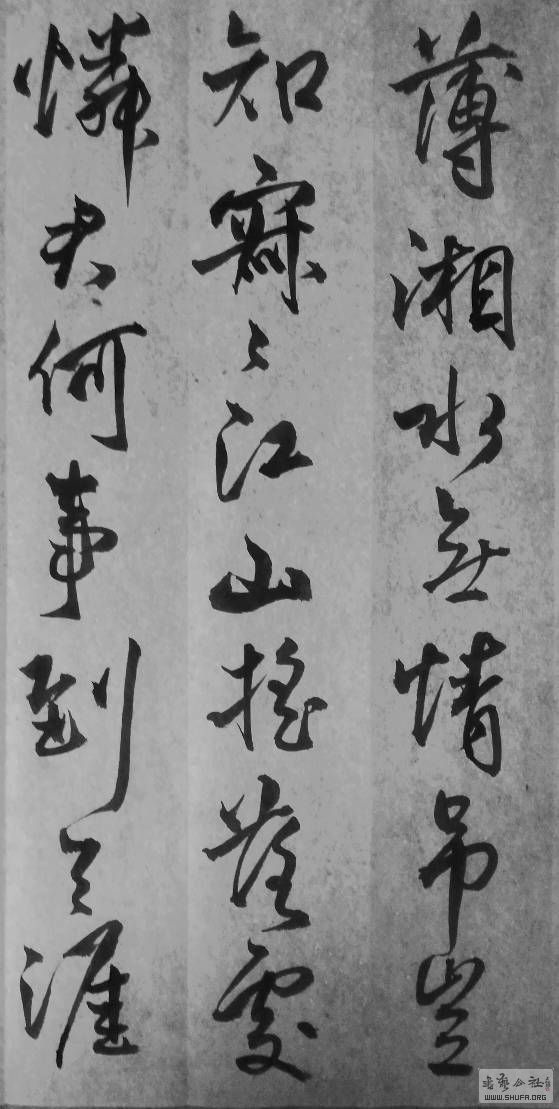 薄湘水無情吊豈
知寂〻江山搖落處
憐君何事到天涯
書藝公社
WWW.SHUFA.ORG